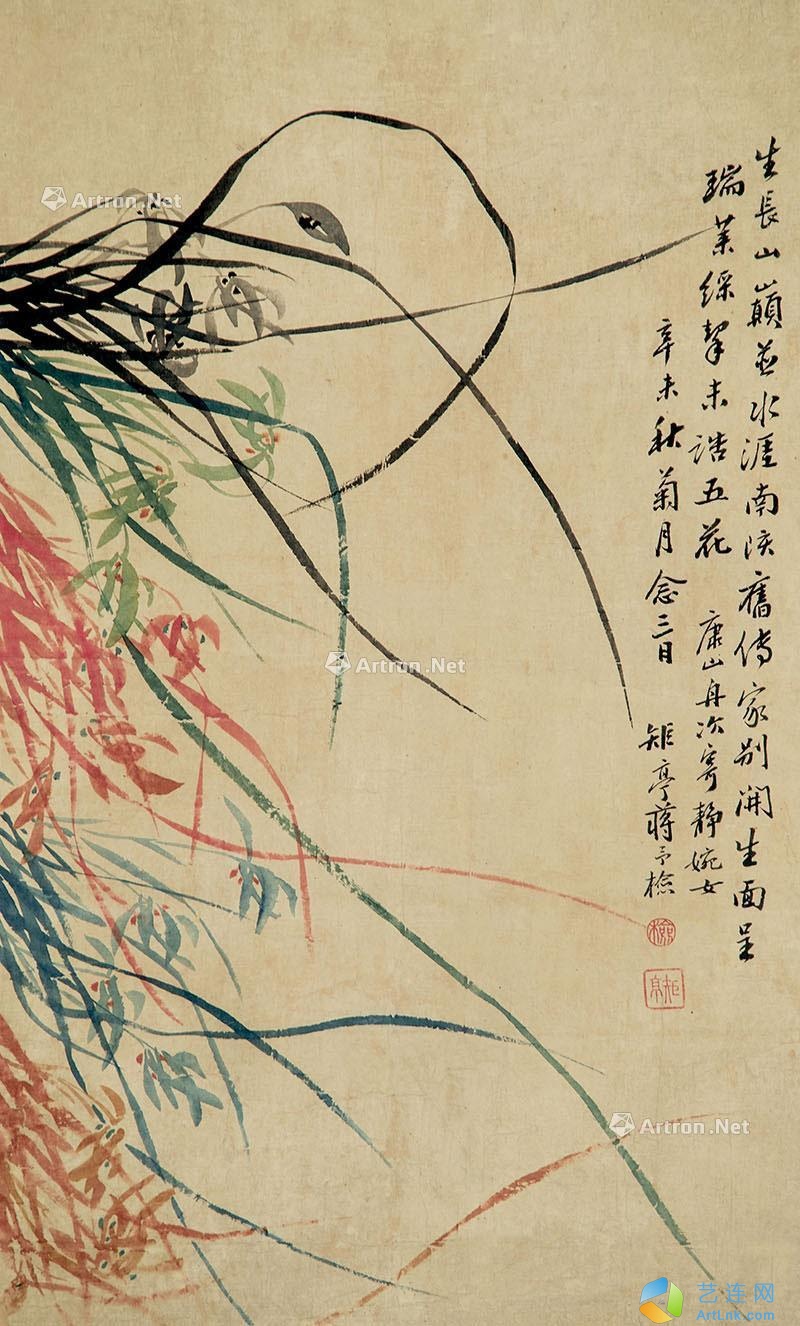 生長山巔並水涯南陔舊傳家別開生面呈
瑞葉綵未誥五花
康山舟次寄靜婉女
辛未秋菊月念三日
矩亭蔣予檢
矩亭
Artron.Net
Artron.Net
Artron.Net
艺连网
ArtLink.com